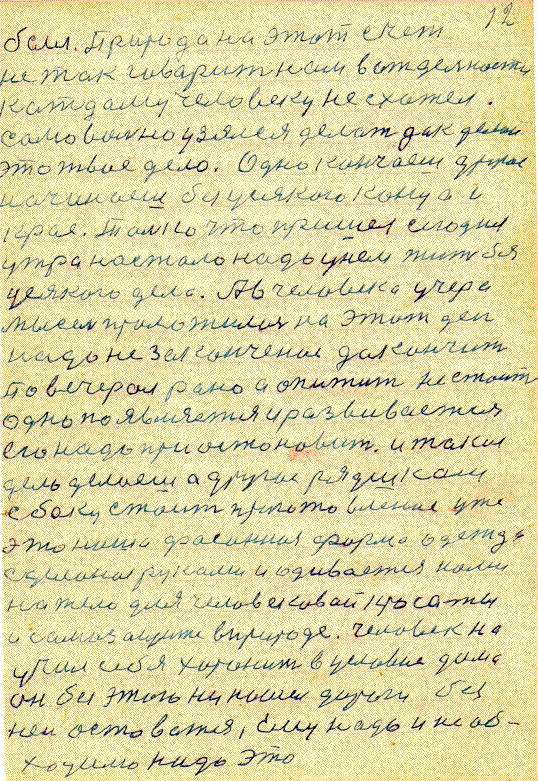 12
балл. Природа на этот счет
не так говарит нам в отделности
каждаму человеку не схожел.
само вол но узялся делат дак делай
это твое дело. Одно кончаеш другое
начинаеш без усякого конца и
края. Толко что пришел сегодня
утра настало надо у нем жит без
усякого дела. А в человека учера
мысел проложилас на этот ден
надо не законченое даканчит
По вечерам рано а опятит не стоит
одно появляется и развивается
его надо приостановит. и такое
дело делаеш а другое рядушкам
с боку стоит приготовление уже
это наша фасонная форма одежда
сделоная руками и одивается нами
на тело для человековай красаты
и самозащите в природе. Человек на
учил себя хоронит в условие дама
он без этого ни нашел дароги без
неи остоватся, ему надо и необ-
ходимо надо это